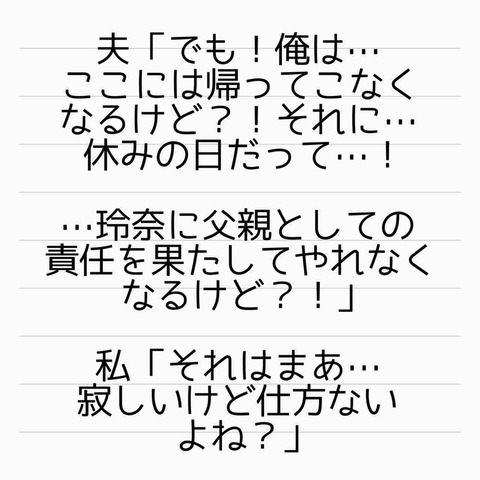 夫「でも！俺は…
ここには帰ってこなく
なるけど？！それに…
休みの日だって…！
…玲奈に父親としての
責任を果たしてやれなく
なるけど？！」
私「それはまあ…
寂しいけど仕方ない
よね？」